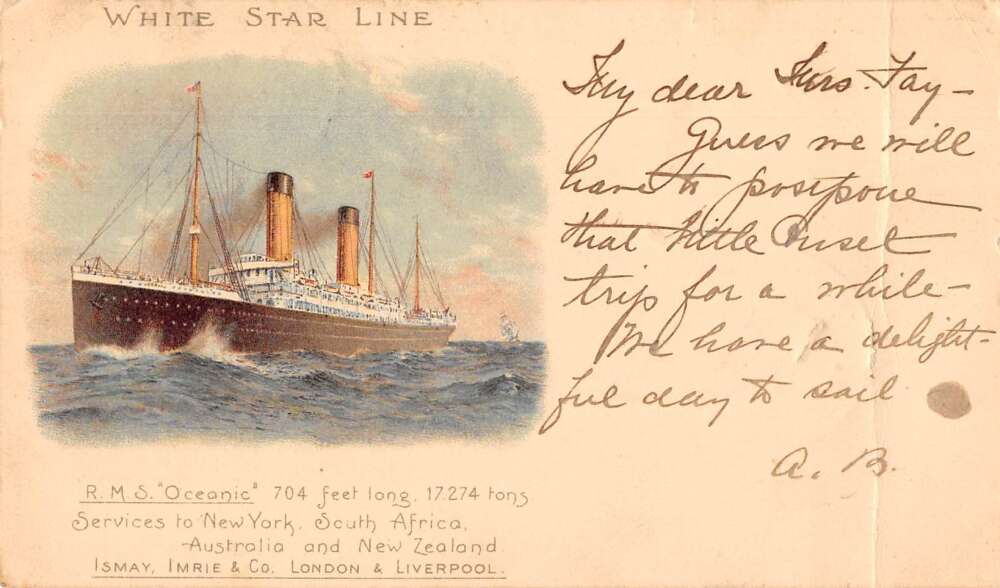 WHITE STAR LINE
My dear Mrs. Fay—
Guess we will
have to postpone
that little
trip for a while—
We have a delight-
ful day to sail
A. B.
R.M.S. "Oceanic" 704 feet long. 17.274 tons
Services to New York. South Africa,
Australia and New Zealand.
ISMAY, IMRIE & CO. LONDON & LIVERPOOL.